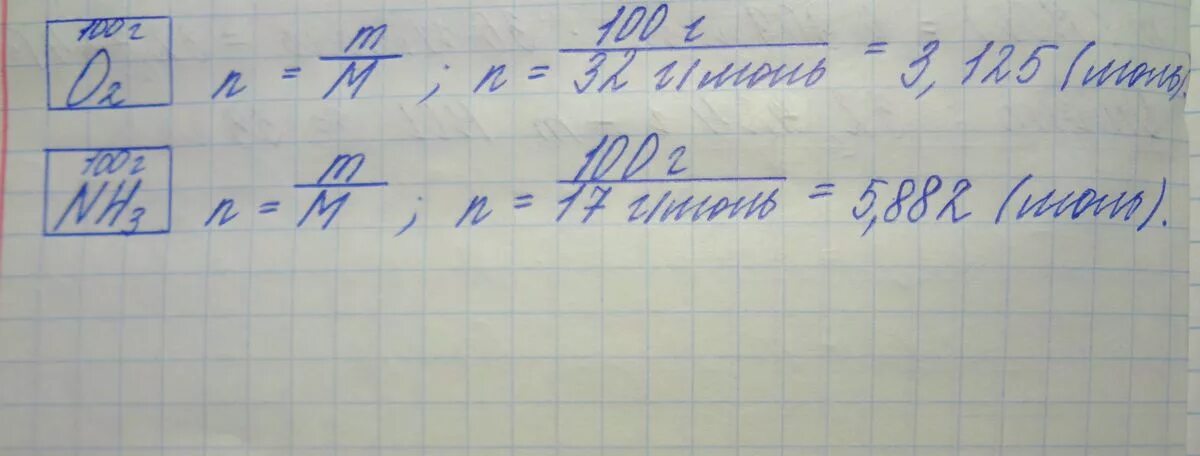 100 г
O₂ n = m/M ; n = 100 г/32 г/моль = 3,125 (моль).
100 г
NH₃ n = m/M ; n = 100 г/17 г/моль = 5,882 (моль).